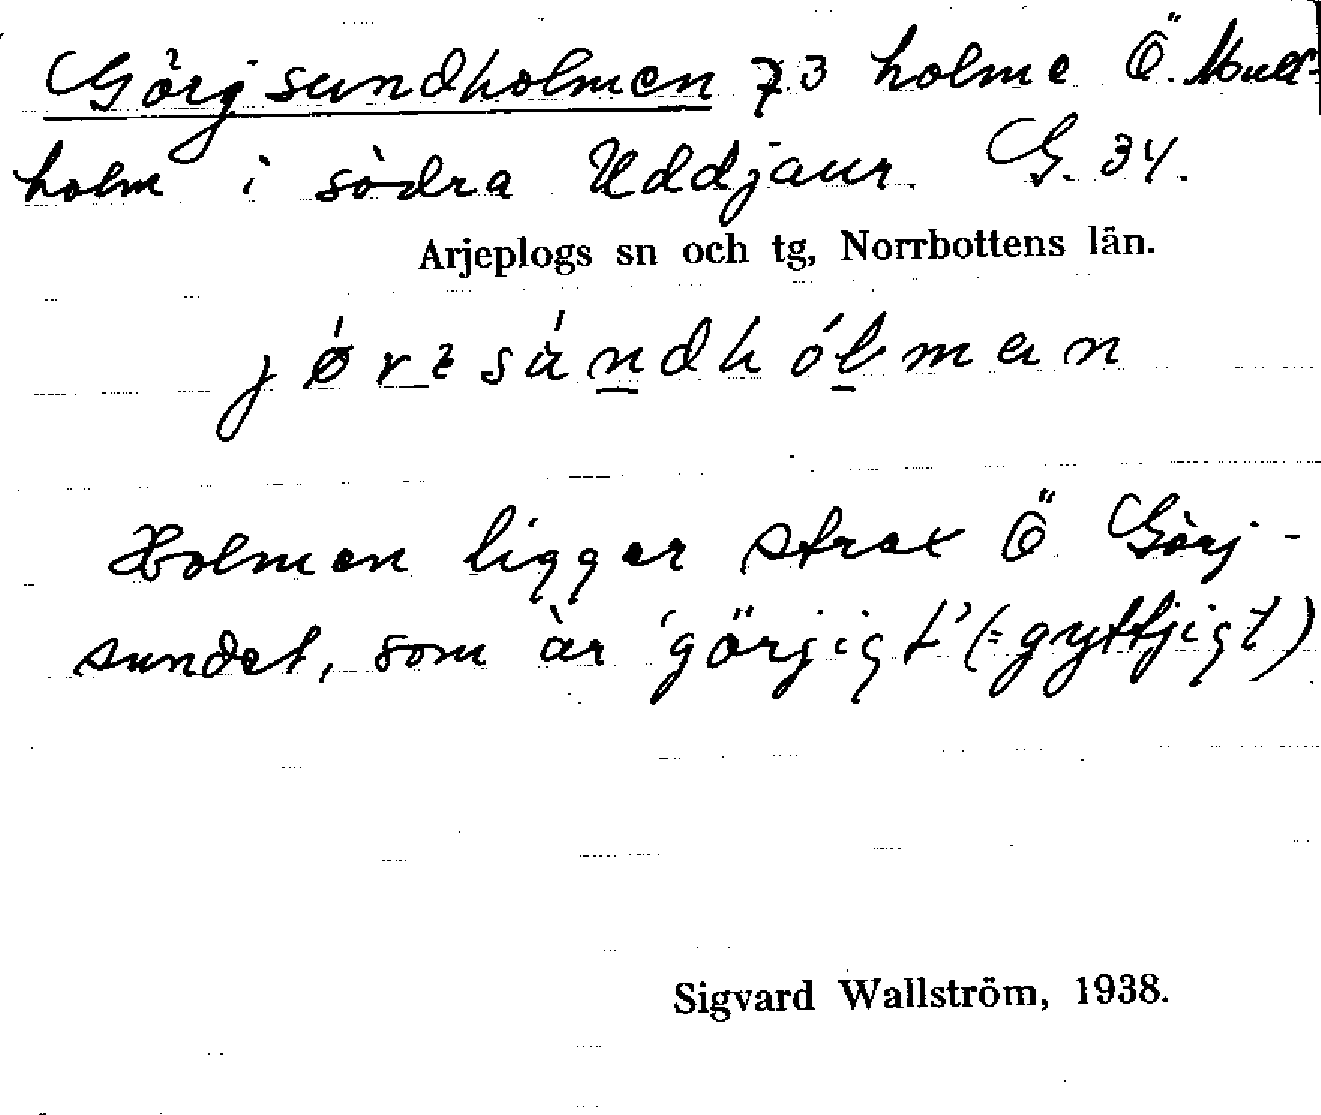 Görjsundholmen 73 holme Ö. Mull-
holm i södra Uddjaur. G. 34.
Arjeplogs sn och tg, Norrbottens län.
Holmen ligger strax Ö Görj-
sundet, som är 'görjigt' (=gyttjigt)
Sigvard Wallström, 1938.